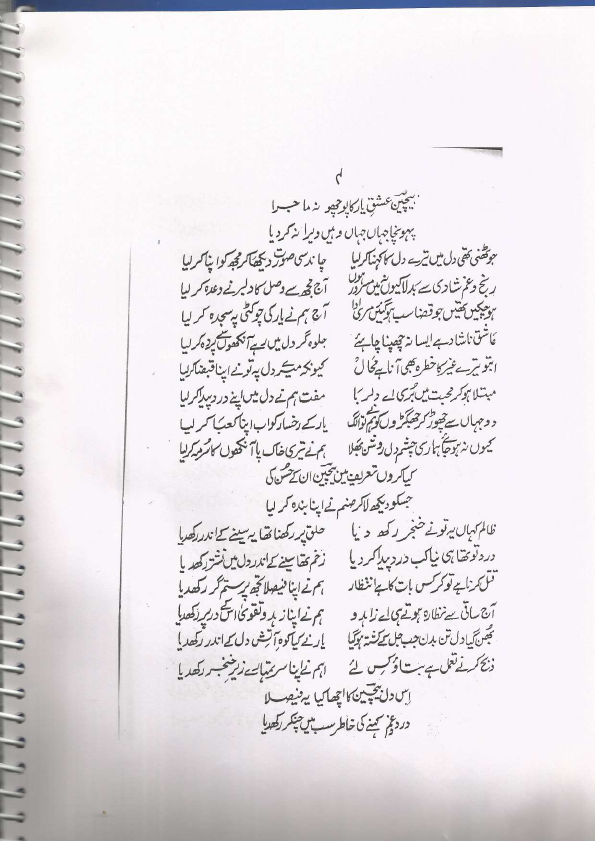 ۴
بیچین عشقِ یار کا پوچھو نہ ماجرا
پہونچا جہاں جہاں وہیں ویرانہ کر دیا
جو ٹھنی تھی دل میں تیرے دل کا کہنا کر لیا چاند سی صورت دیکھا کر مجھ کو اپنا کر لیا
رنج و غم شادی سے بدلا کیوں نہ میں مسرور ہوں آج مجھ سے وصل کا دلبر نے وعدہ کر لیا
ہو چکیں تھیں جو قضا سب ہو گئیں مری ادا آج ہم نے یار کی چوکٹی پہ سجدہ کر لیا
عاشق ناشاد سے ایسا نہ چھپنا چاہئے جلوہ گر دل میں رہے آنکھوں سے پردہ کر لیا
ابتو تیرے غیر کا خطرہ بھی آنا ہے محال کیونکہ میرے دل پہ تو نے اپنا قبضا کر لیا
مبتلا ہو کر محبت میں بُری اے دلربا مفت ہم نے دل میں اپنے درد پیدا کر لیا
دو جہاں سے چھوڑ کر جھگڑوں کو ہم نے تو الگ یار کے رخسار کو اب اپنا کعبا کر لیا
کیوں نہ ہو جائے ہماری چشمِ دل روشن بھلا ہم نے تیری خاک پا آنکھوں کا سرمہ کر لیا
کیا کروں تعریف میں بیچین ان کے حُسن کی
جسکو دیکھ لا کر صنم نے اپنا بندہ کر لیا
ظالم کہاں یہ تو نے خنجر رکھ دیا حلق پر رکھنا تھا یہ سینے کے اندر رکھدیا
درد تو تھا ہی نیا کب درد پیدا کر دیا زخم تھا سینے کے اندر دل میں نشتر رکھدیا
قتل کرنا ہے تو کر کس بات کا ہے انتظار ہم نے اپنا فیصلا تجھ پر ستم گر رکھدیا
آج ساقی سے نظارہ ہوتے ہی اے زاہدو ہم نے اپنا زہد و تقویٰ اسکے در پر رکھدیا
بھُن گیا دل تن بدن جب جل کے کشتہ ہو گیا یار نے کیا کوہ آتش دل کے اندر رکھدیا
ذبح کرنے تعمل ہے بتاؤ کس لئے اہم نے اپنا سر تمہارے زیرِ خنجر رکھدیا
اِس دل بیچین کا اچھا کیا یہ فیصلا
درد و غم سہنے کی خاطر سب میں چنکر رکھدیا